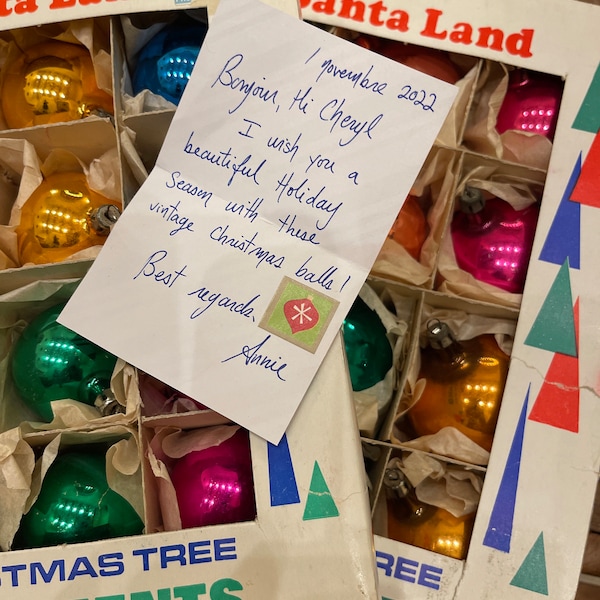 Santa Land
1 novembre 2022
Bonjour, Hi Cheryl
I wish you a
beautiful Holiday
Season with these
vintage Christmas balls!
Best regards,
Annie
TMAS TREE
REE